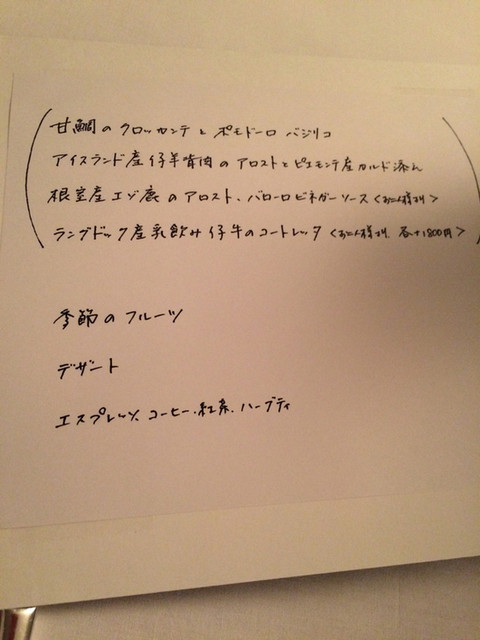 甘鯛のクロッカンテとポモドーロ バジリコ
アイスランド産仔羊背肉のアロストとピエモンテ産カルド添え
根室産エゾ鹿のアロスト、バローロビネガーソース <お二人様より>
ラングドック産乳飲み仔牛のコートレッタ <お二人様より 各+1800円>
季節のフルーツ
デザート
エスプレッソ、コーヒー、紅茶、ハーブティ